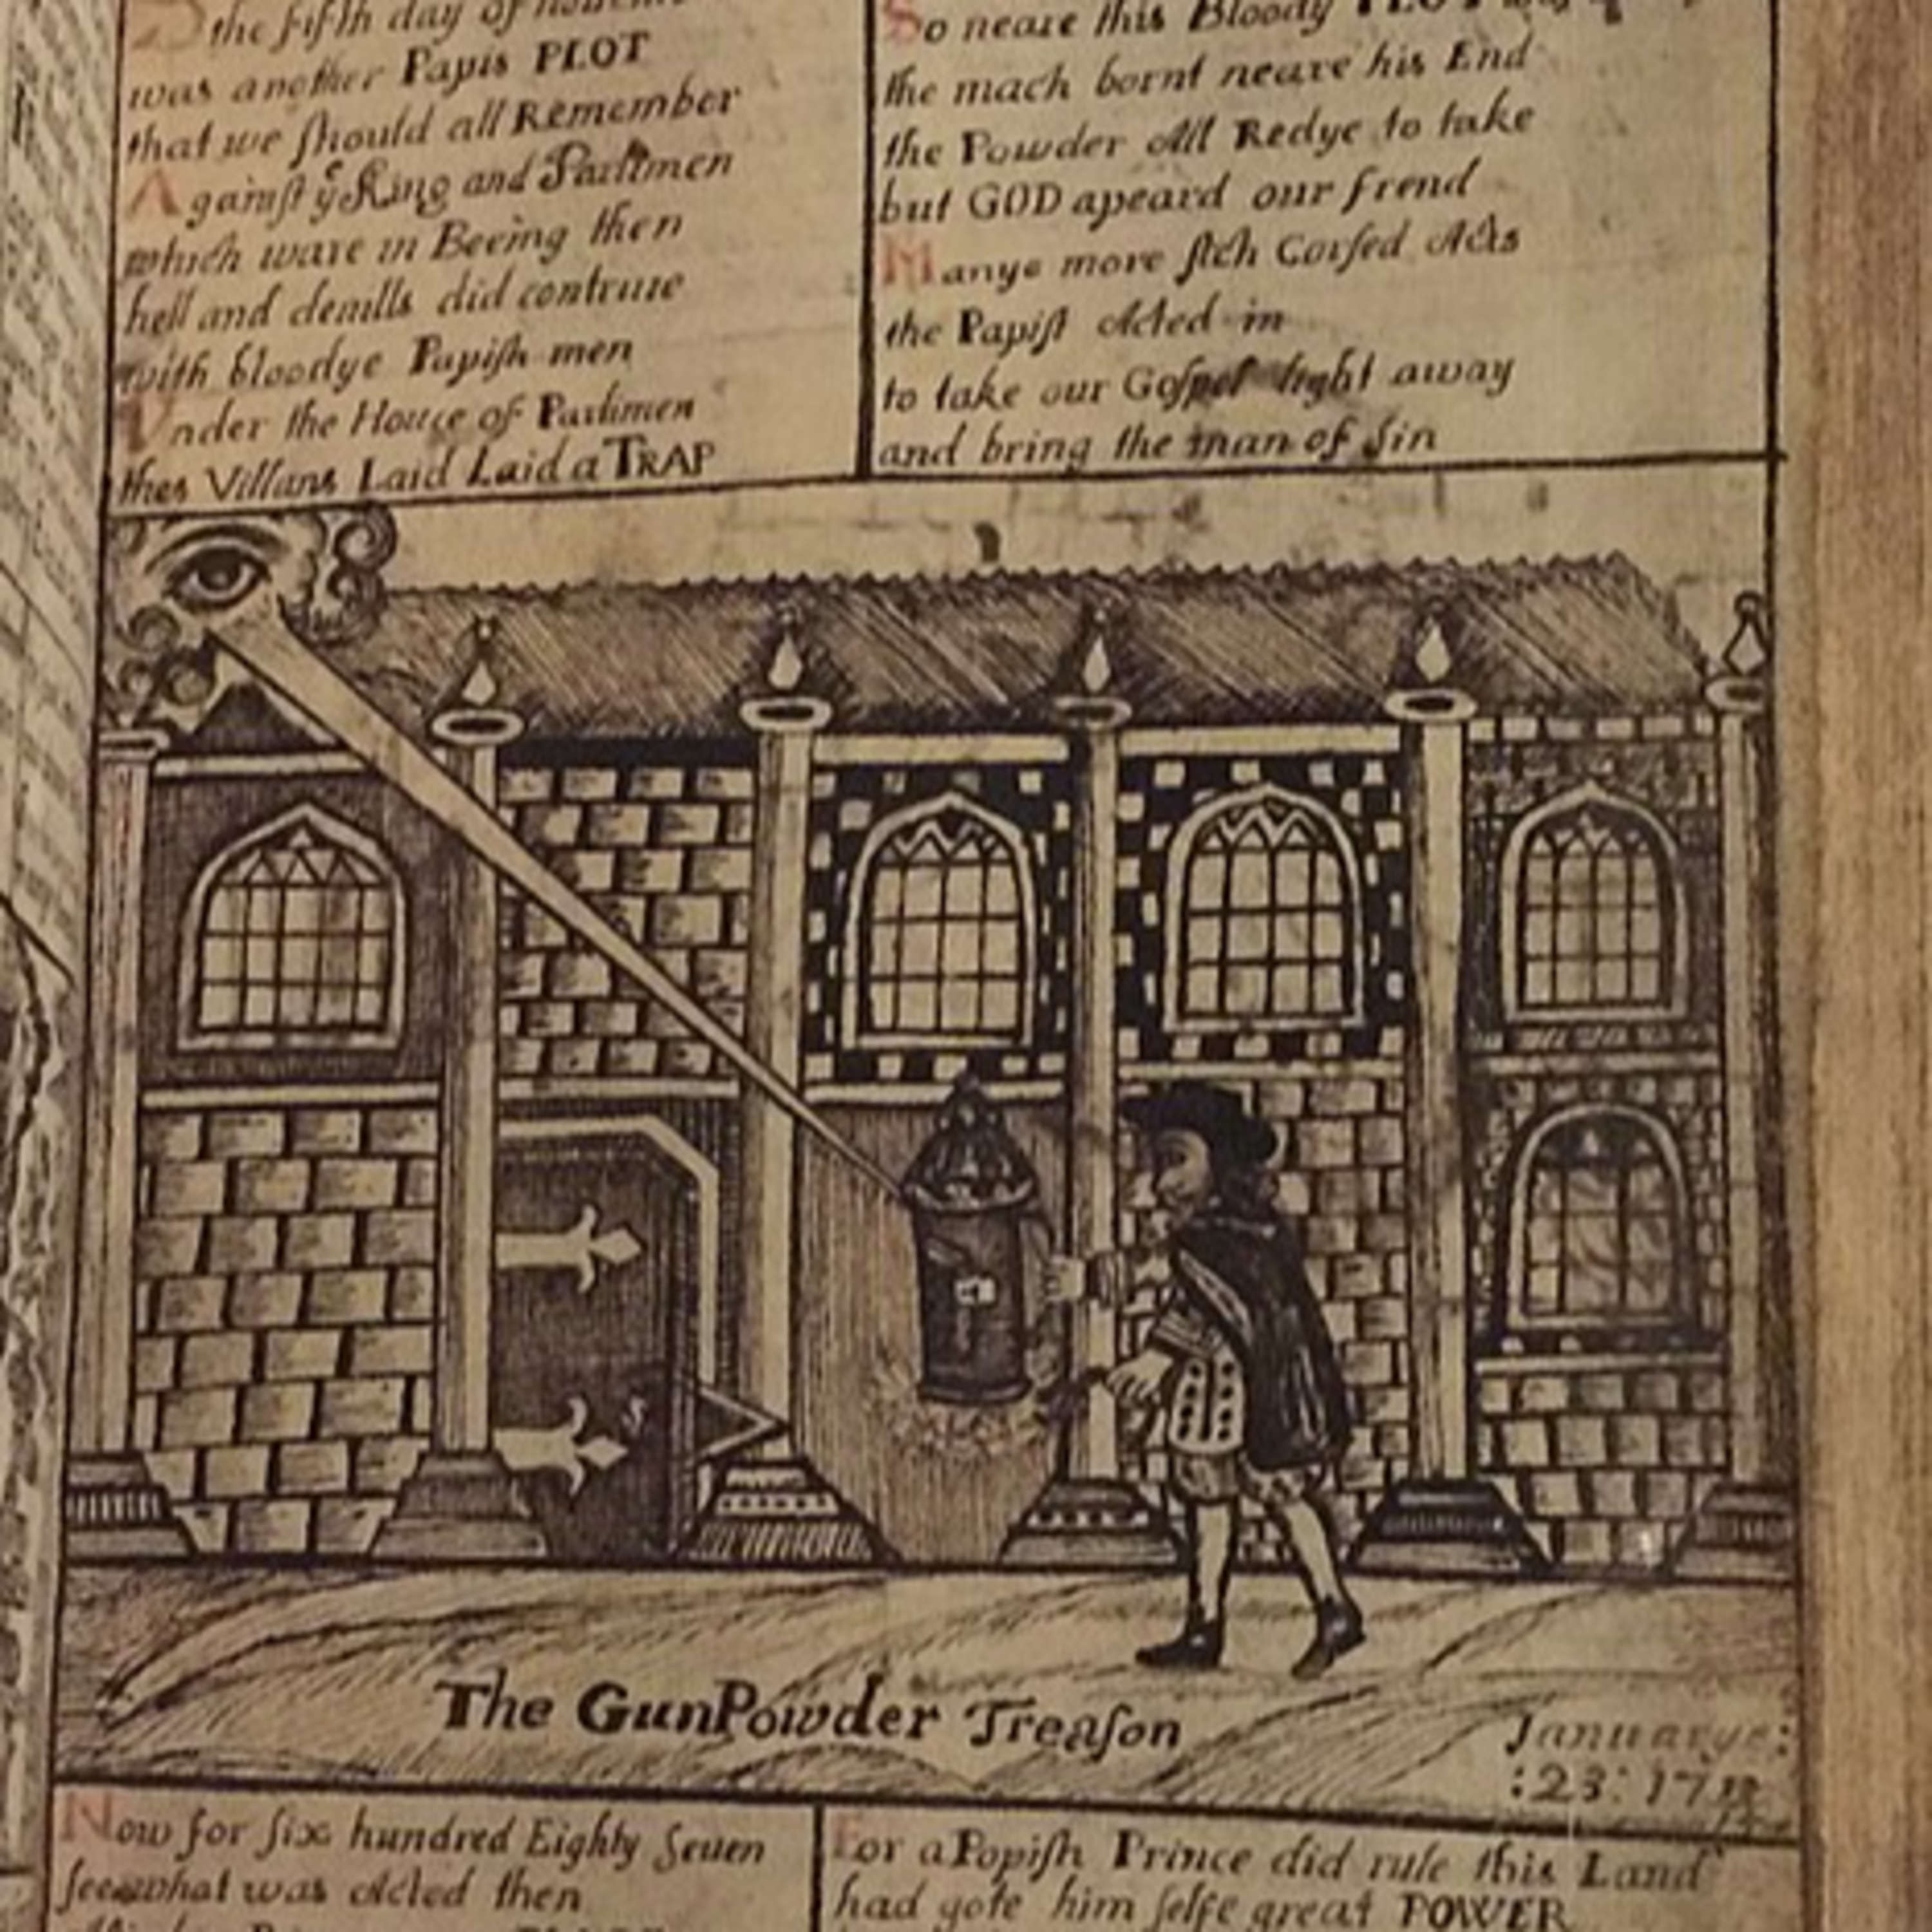 the fifth day of
was another Papis PLOT
that we should all Remember
Against yͤ King and Parlimen
which ware in Beeing then
hell and deuills did contriue
with bloodye Papish men
Vnder the House of Parlimen
thes Villans Laid Laid a TRAP
So neare this Bloody PLOT
the mach bornt neare his End
the Powder All Redye to take
but GOD apeard our frend
Manye more sich Corsed Acts
the Papist Acted in
to take our Gospel light away
and bring the man of sin
The GunPowder Treason
Januarye:
:23: 17
Now for six hundred Eighty Seuen
see what was Acted then
For a Popish Prince did rule this Land
had gote him selfe great POWER